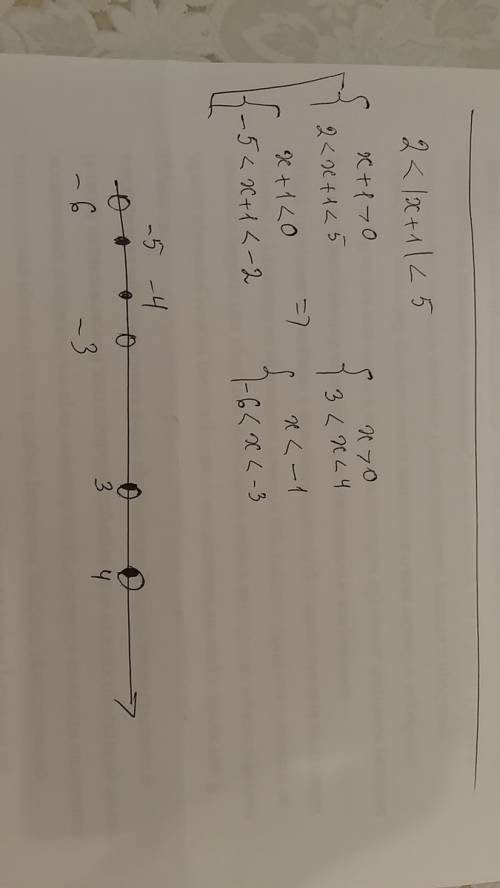 2 < |x+1| < 5
{ x+1>0
2 < x+1 < 5
{ x+1<0
-5 < x+1 < -2
=>
{ x>0
3 < x < 4
{ x < -1
-6 < x < -3
-6 -5 -4 -3 3 4